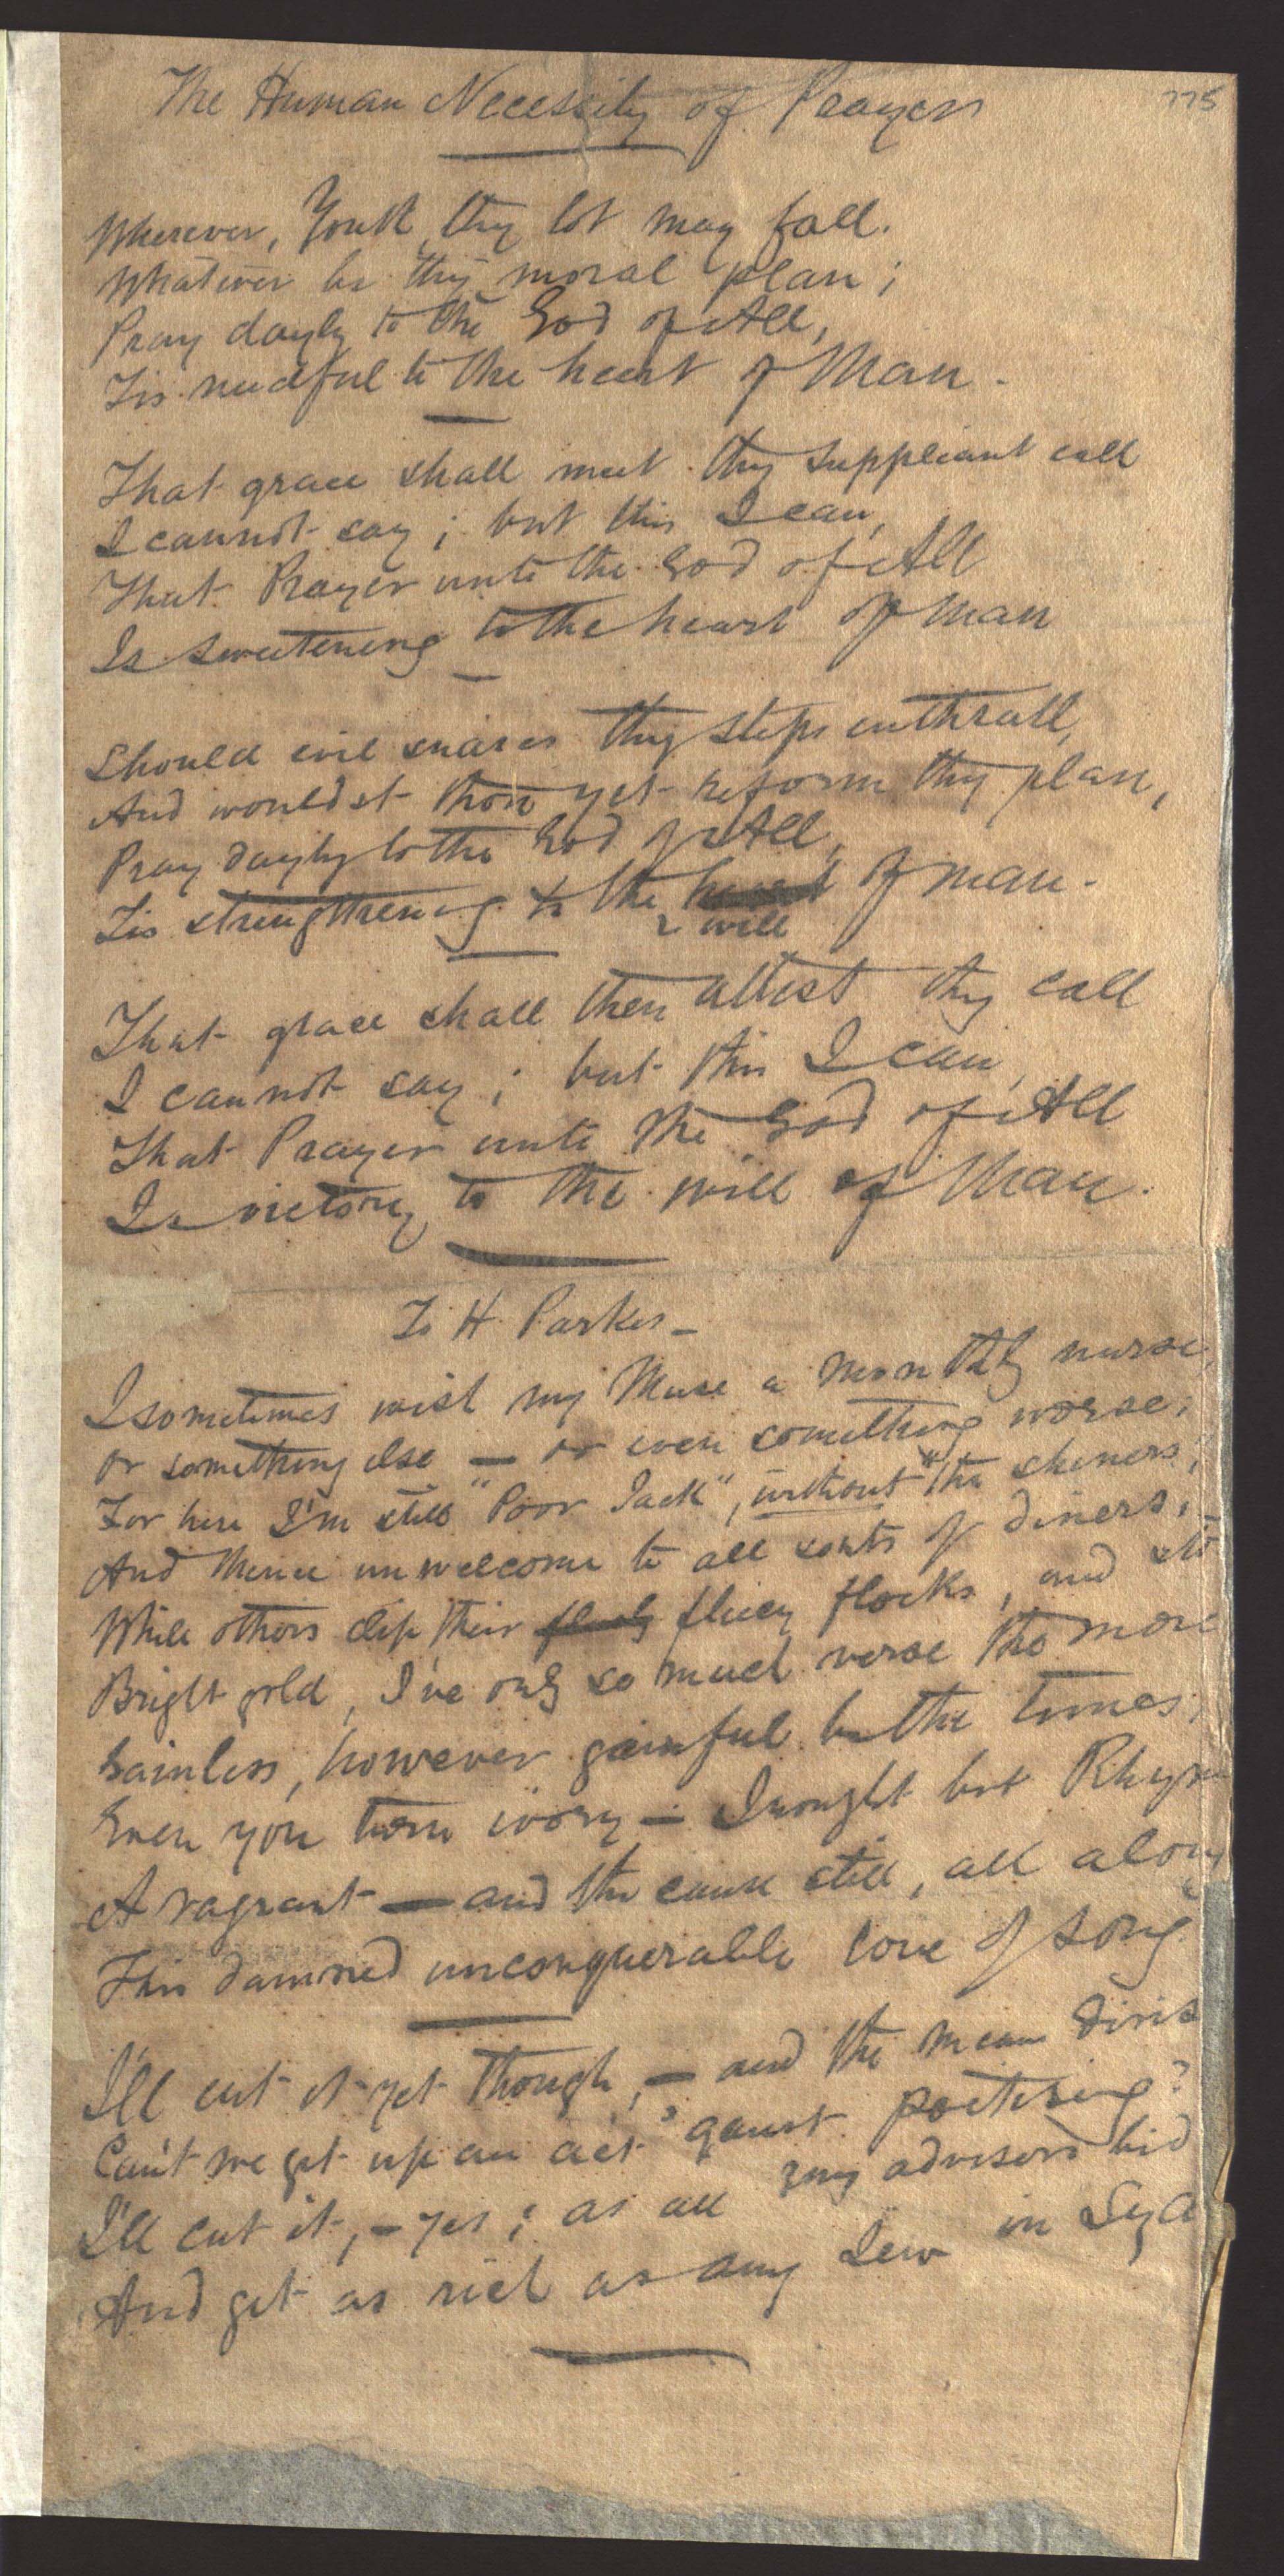 775
The Human Necessity of Prayer
Wherever, Youth, thy lot may fall.
Whatever be thy moral plan;
Pray dayly to the God of All,
Tis needful to the heart of Man.
That grace shall meet thy suppliant call
I cannot say; but this I can,
That Prayer unto the God of All
Is sweetening to the heart of man
Should evil snares thy steps enthrall,
And wouldst thou yet reform thy plan,
Pray dayly to the God of All,
Tis strengthening to the heart of man.
will
That grace shall then attest thy call
I cannot say; but this I can,
That Prayer unto the God of All
Is victory to the will of Man.
To H. Parkes—
I sometimes wish my Muse a monthly nurse,
Or something else — or even something worse;
For here I'm still "Poor Jack", without "the shiners;"
And thence unwelcome to all sorts of diners;
While others clip their fleecy flocks, and sto
Bright gold, I've only so much verse the more
Gainless, however gainful be the times;
Even you turn ivory — I nought but Rhym
A vagrant — and the cause still, all along
This damned unconquerable love of song.
I'll cut it yet though, — and the mean divis
Can't we get up an act 'gainst poetising?
I'll cut it, — yes; as all my advisors bid
And get as rich as any Jew in Syd